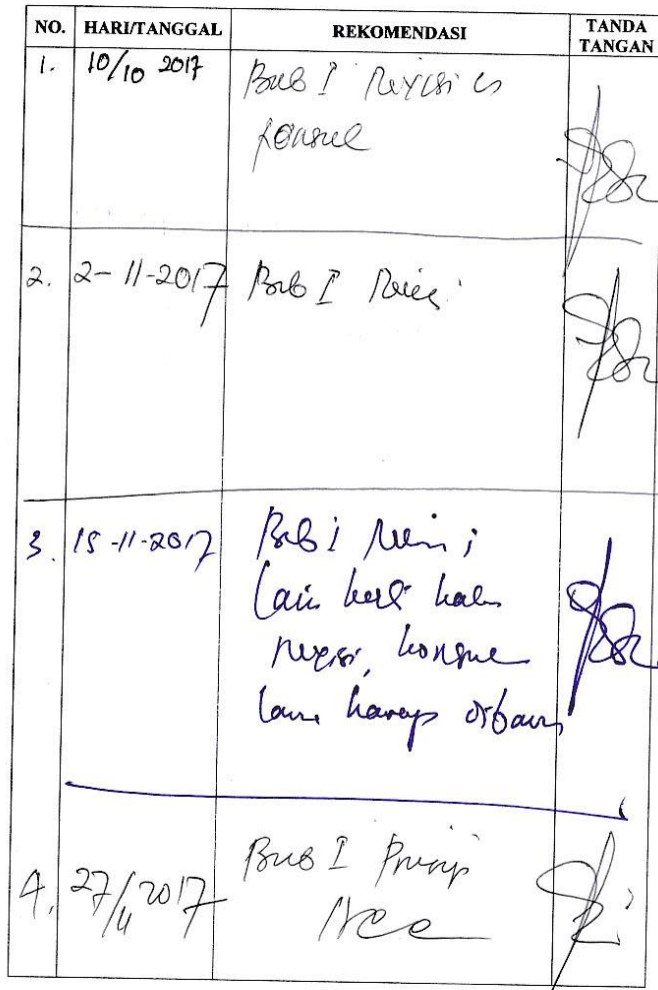 NO. HARI/TANGGAL REKOMENDASI TANDA TANGAN
1. 10/10 2017 Bab I Revisi
konsul
2. 2-11-2017 Bab I Revisi
3. 15-11-2017 Bab I Revisi ;
lain kali kalau
revisi, konsul
lama harap dibawa
4. 27/11 2017 Bab I Prinsip
Acc